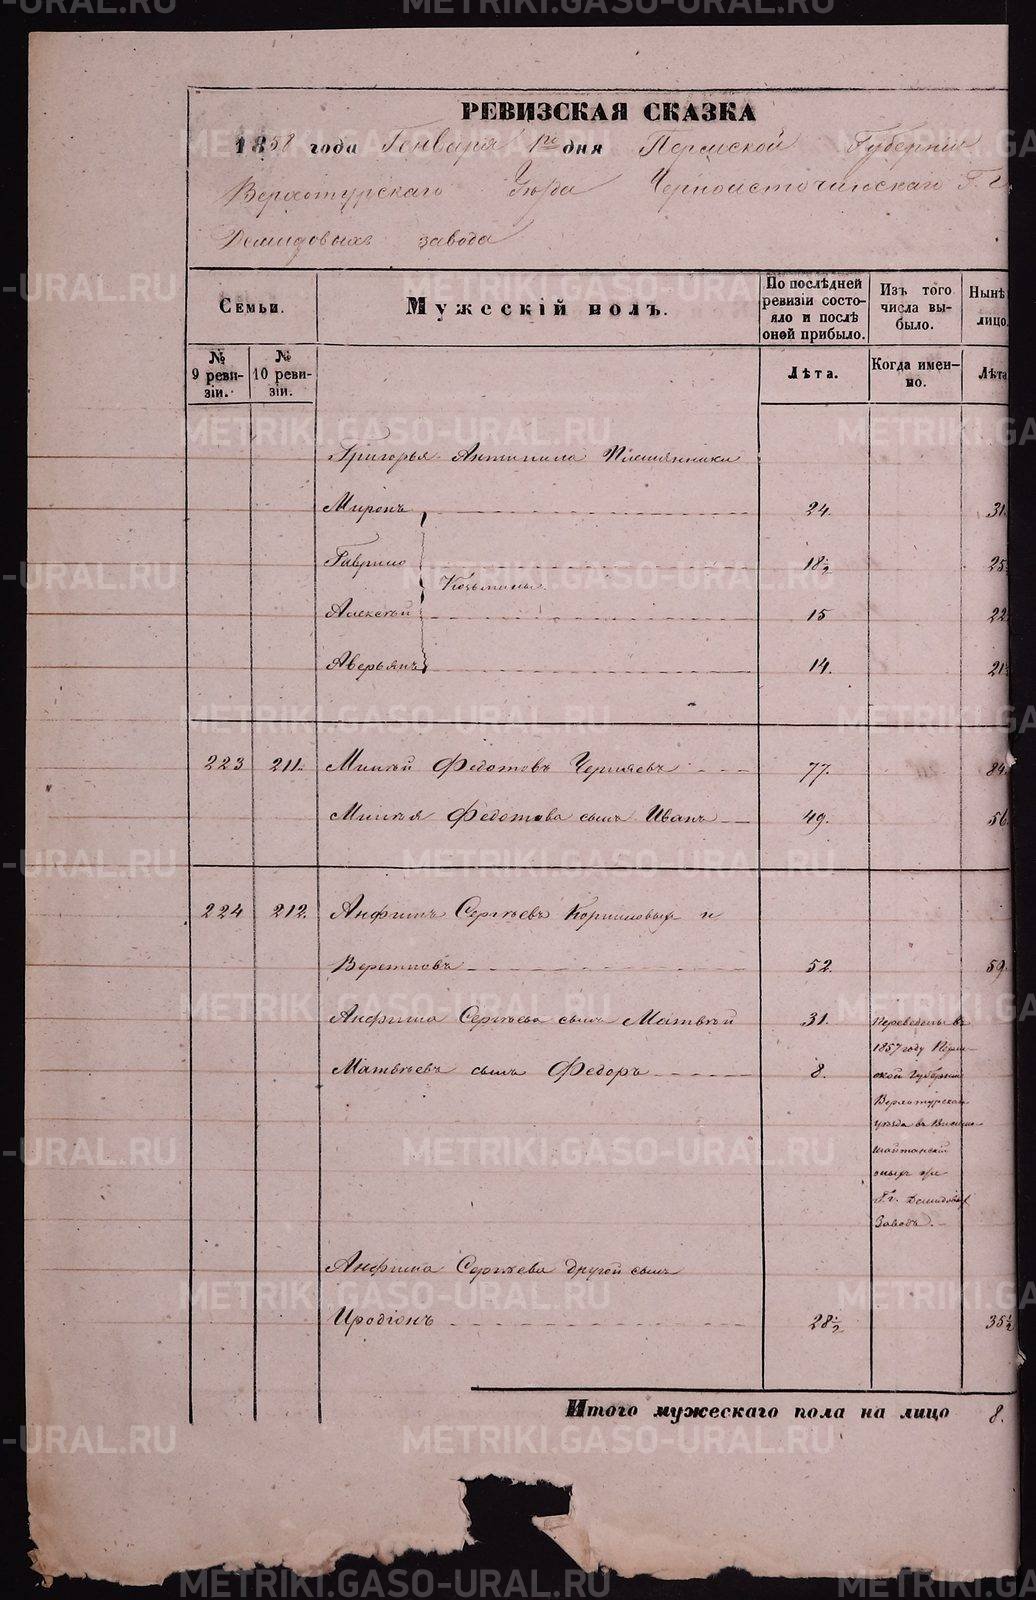 РЕВИЗСКАЯ СКАЗКА
1858 года Генваря 1го дня Пермской Губернии
Верхотурскаго Уѣзда Черноисточинскаго Г. Г.
Демидовыхъ завода
Семьи.
Мужескій полъ.
По послѣдней ревизіи состояло и послѣ оной прибыло.
Изъ того числа выбыло.
Нынѣ
лицо.
№ 9 ревизіи.
№ 10 ревизіи.
Лѣта.
Когда именно.
Лѣта
Григорья Антипина Племянники
Миронъ 24. 31.
Гаврило 18½ 25½
Козьмины
Алексѣй 15 22
Аверьянъ 14. 21
223 211. Михѣй Федотовъ Черняевъ 77. 84.
Михѣя Федотова сынъ Иванъ 49. 56.
224 212. Анфимъ Сергѣевъ Корниловыхъ и
Веретновъ 52. 59.
Анфима Сергѣева сынъ Матвѣй 31.
Матвѣевъ сынъ Федоръ 8.
Переведены въ
1857 году Перм-
ской Губернии
Верхотурскаго
уѣзда въ Висимо
шайтанскій
оныхъ же
Г. г. Демидовыхъ
Заводъ.
Анфима Сергѣева другой сынъ
Иродіонъ 28½ 35½
Итого мужескаго пола на лицо 8.
METRIKI.GASO-URAL.RU